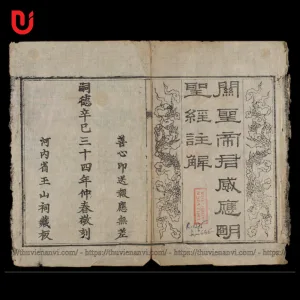 關聖帝君感應明
聖經註解
善心印送報應無差
嗣德辛巳三十四年仲春敬刻
河内省玉山祠藏板
https://thuvienanvi.com/
https://thuvienanvi.com/